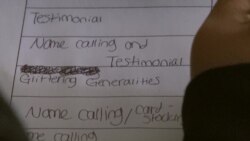 Testimonial
Name calling and
Testimonial
Glittering Generalities
Name calling/Card-
Stacking
me calling